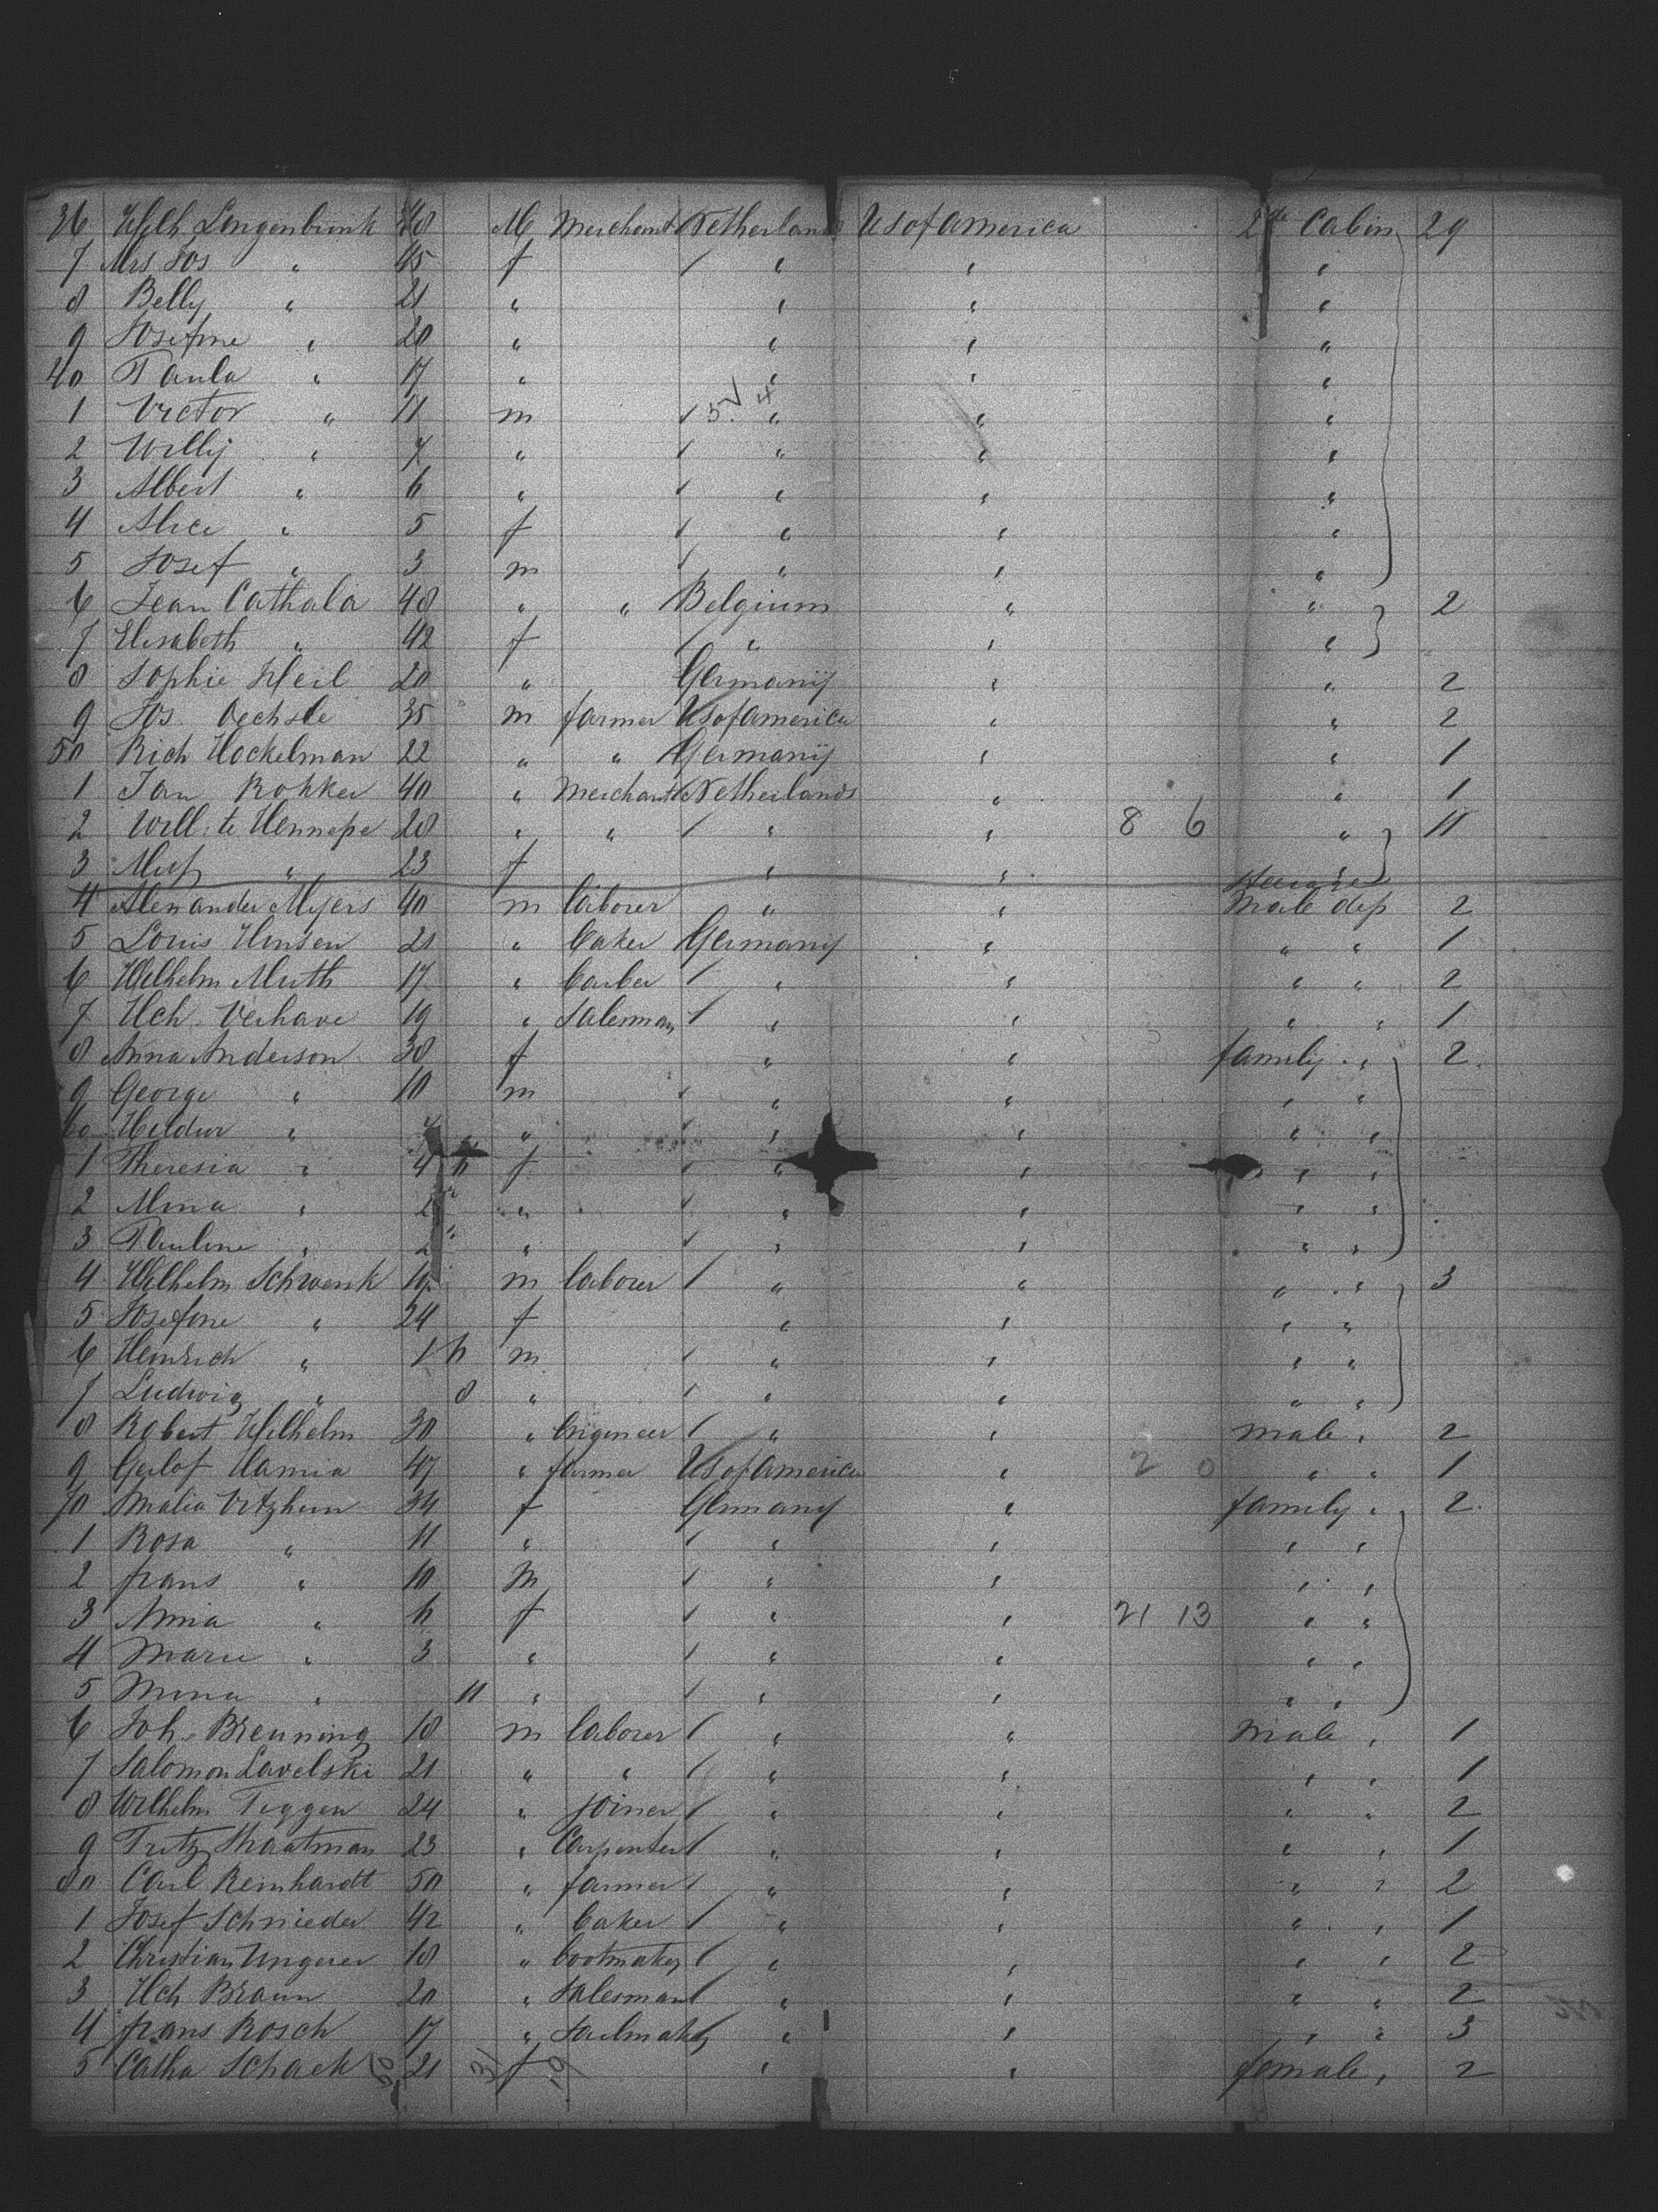 36 Wilh Langenbrink 48 M Merchant Netherland Us of America 2de Cabin 29
7 Mrs Jos " 45 f / " " "
8 Belly " 21 " " " "
9 Josefine " 20 " " " "
40 Paula " 17 " " " "
1 Victor " 11 m / 5 √ 4 " " "
2 Willy " 7 " / " " "
3 Albert " 6 " / " " "
4 Alice " 5 f / " " "
5 Josef " 3 m / " " "
6 Jean Cathala 48 " " Belgium " " 2
7 Elisabeth " 42 f / " " "
8 Sophie Heil 20 " Germany " " 2
9 Jos. Oechsle 35 m farmer Us of America " " 2
50 Rich Hockelman 22 " " Germany " " 1
1 Jan Rohker 40 " Merchant Netherlands " " 1
2 Will. te Hennepe 28 " " / " " 8 6 " 11
3 " 23 f " " "
4 Alexander Myers 40 m laborer " " Male dep 2
5 Louis Hinsen 21 " baker Germany " " " 1
6 Wilhelm Muth 17 " barber / " " " " 2
7 Hch. Verhave 19 " Salesman / " " " " 1
8 Anna Anderson 38 f " " family " 2
9 George " 10 m / " " " "
60 Hildur " " / " " " "
1 Theresia " 4 f / " " " "
2 Mina " 2 " / " " " "
3 Pauline " 2 " / " " " "
4 Wilhelm Schwenk 19 m laborer / " " " " 3
5 Josefine " 24 f " " " "
6 Heinrich " 1 h m / " " " "
7 Ludwig " 8 " / " " " "
8 Robert Wilhelm 30 " Engineer / " " male " 2
9 Gerlof Hamia 47 " farmer Us of America " 2 0 " " 1
70 Amalia Vitzhum 34 f Germany " family " 2
1 Rosa " 11 " / " " " "
2 frans " 10 M / " " " "
3 Anna " h f / " " 21 13 " "
4 Marie " 3 " / " " " "
5 Mina " 11 " / " " " "
6 Joh. Breuning 18 m laborer / " " Male " 1
7 Salomon Lavelski 21 " " / " " " " 1
8 Wilhelm Teggen 24 " joiner / " " " " 2
9 Fritz Straatman 23 " Carpenter / " " " " 1
80 Carl Reinhardt 50 " farmer / " " " " 2
1 Josef Schnieder 42 " baker / " " " " 1
2 Christian Ungerer 18 " bootmaker / " " " " 2
3 Hch Braun 20 " Salesman / " " " " 2
4 frans Rosch 17 " Sailmaker / " " " " 3
5 Catha Schack 21 31 f 19 " " female " 2